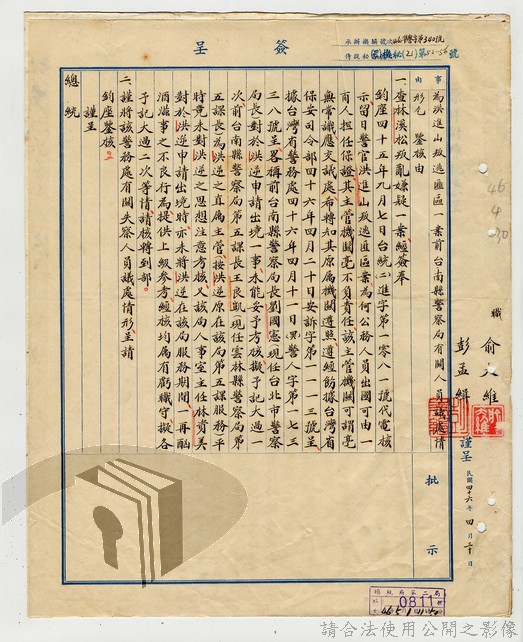 簽呈
承辦機關號次(46)平醫字第340號
機秘(21)第52-56號
事由
為洪進山叛逃匪區一案前台南縣警察局有關人員議處情
形乞 鑒核由
職 俞大維
彭孟緝 謹呈
民國四十六年四月三十日
一、查林溪松叛亂嫌疑一案經簽奉
鈞座四十五年九月七日台統(二)進字第一零八一號代電核
示留日警官洪進山叛逃匪區案為何公務人員出國可由一
商人担任保證其主管機關毫不負責任該主管機關可謂毫
無常識應交議處希轉知其原屬機關遵照遵經飭據台灣省
保安司令部四十六年四月二十日安訴字第一一一三號呈
據台灣省警務處四十六年四月十一日(46)警人字第一七三
三八號呈畧稱前台南縣警察局長劉國憲(現任台北市警察
局長)對於洪逆申請出境一事未能妥予考核擬予記大過一
次前台南縣警察局第五課長王良凱(現任雲林縣警察局第
五課長)為洪逆之直屬主管(按洪逆原在該局第五課服務)平
時竟未對洪逆之思想注意考核又該局人事室主任林資美
對於洪逆申請出境時亦未將洪逆在該局服務期間一再酗
酒滋事之不良行為提供上級參考經核均屬有虧職守擬各
予記大過二次等情請核轉到部。
二、謹將該警務處有關失察人員議處情形呈請
鈞座鑒核。
謹呈
總統
批示
46
4
30
總統府第二局
0811
請合法使用公開之影像